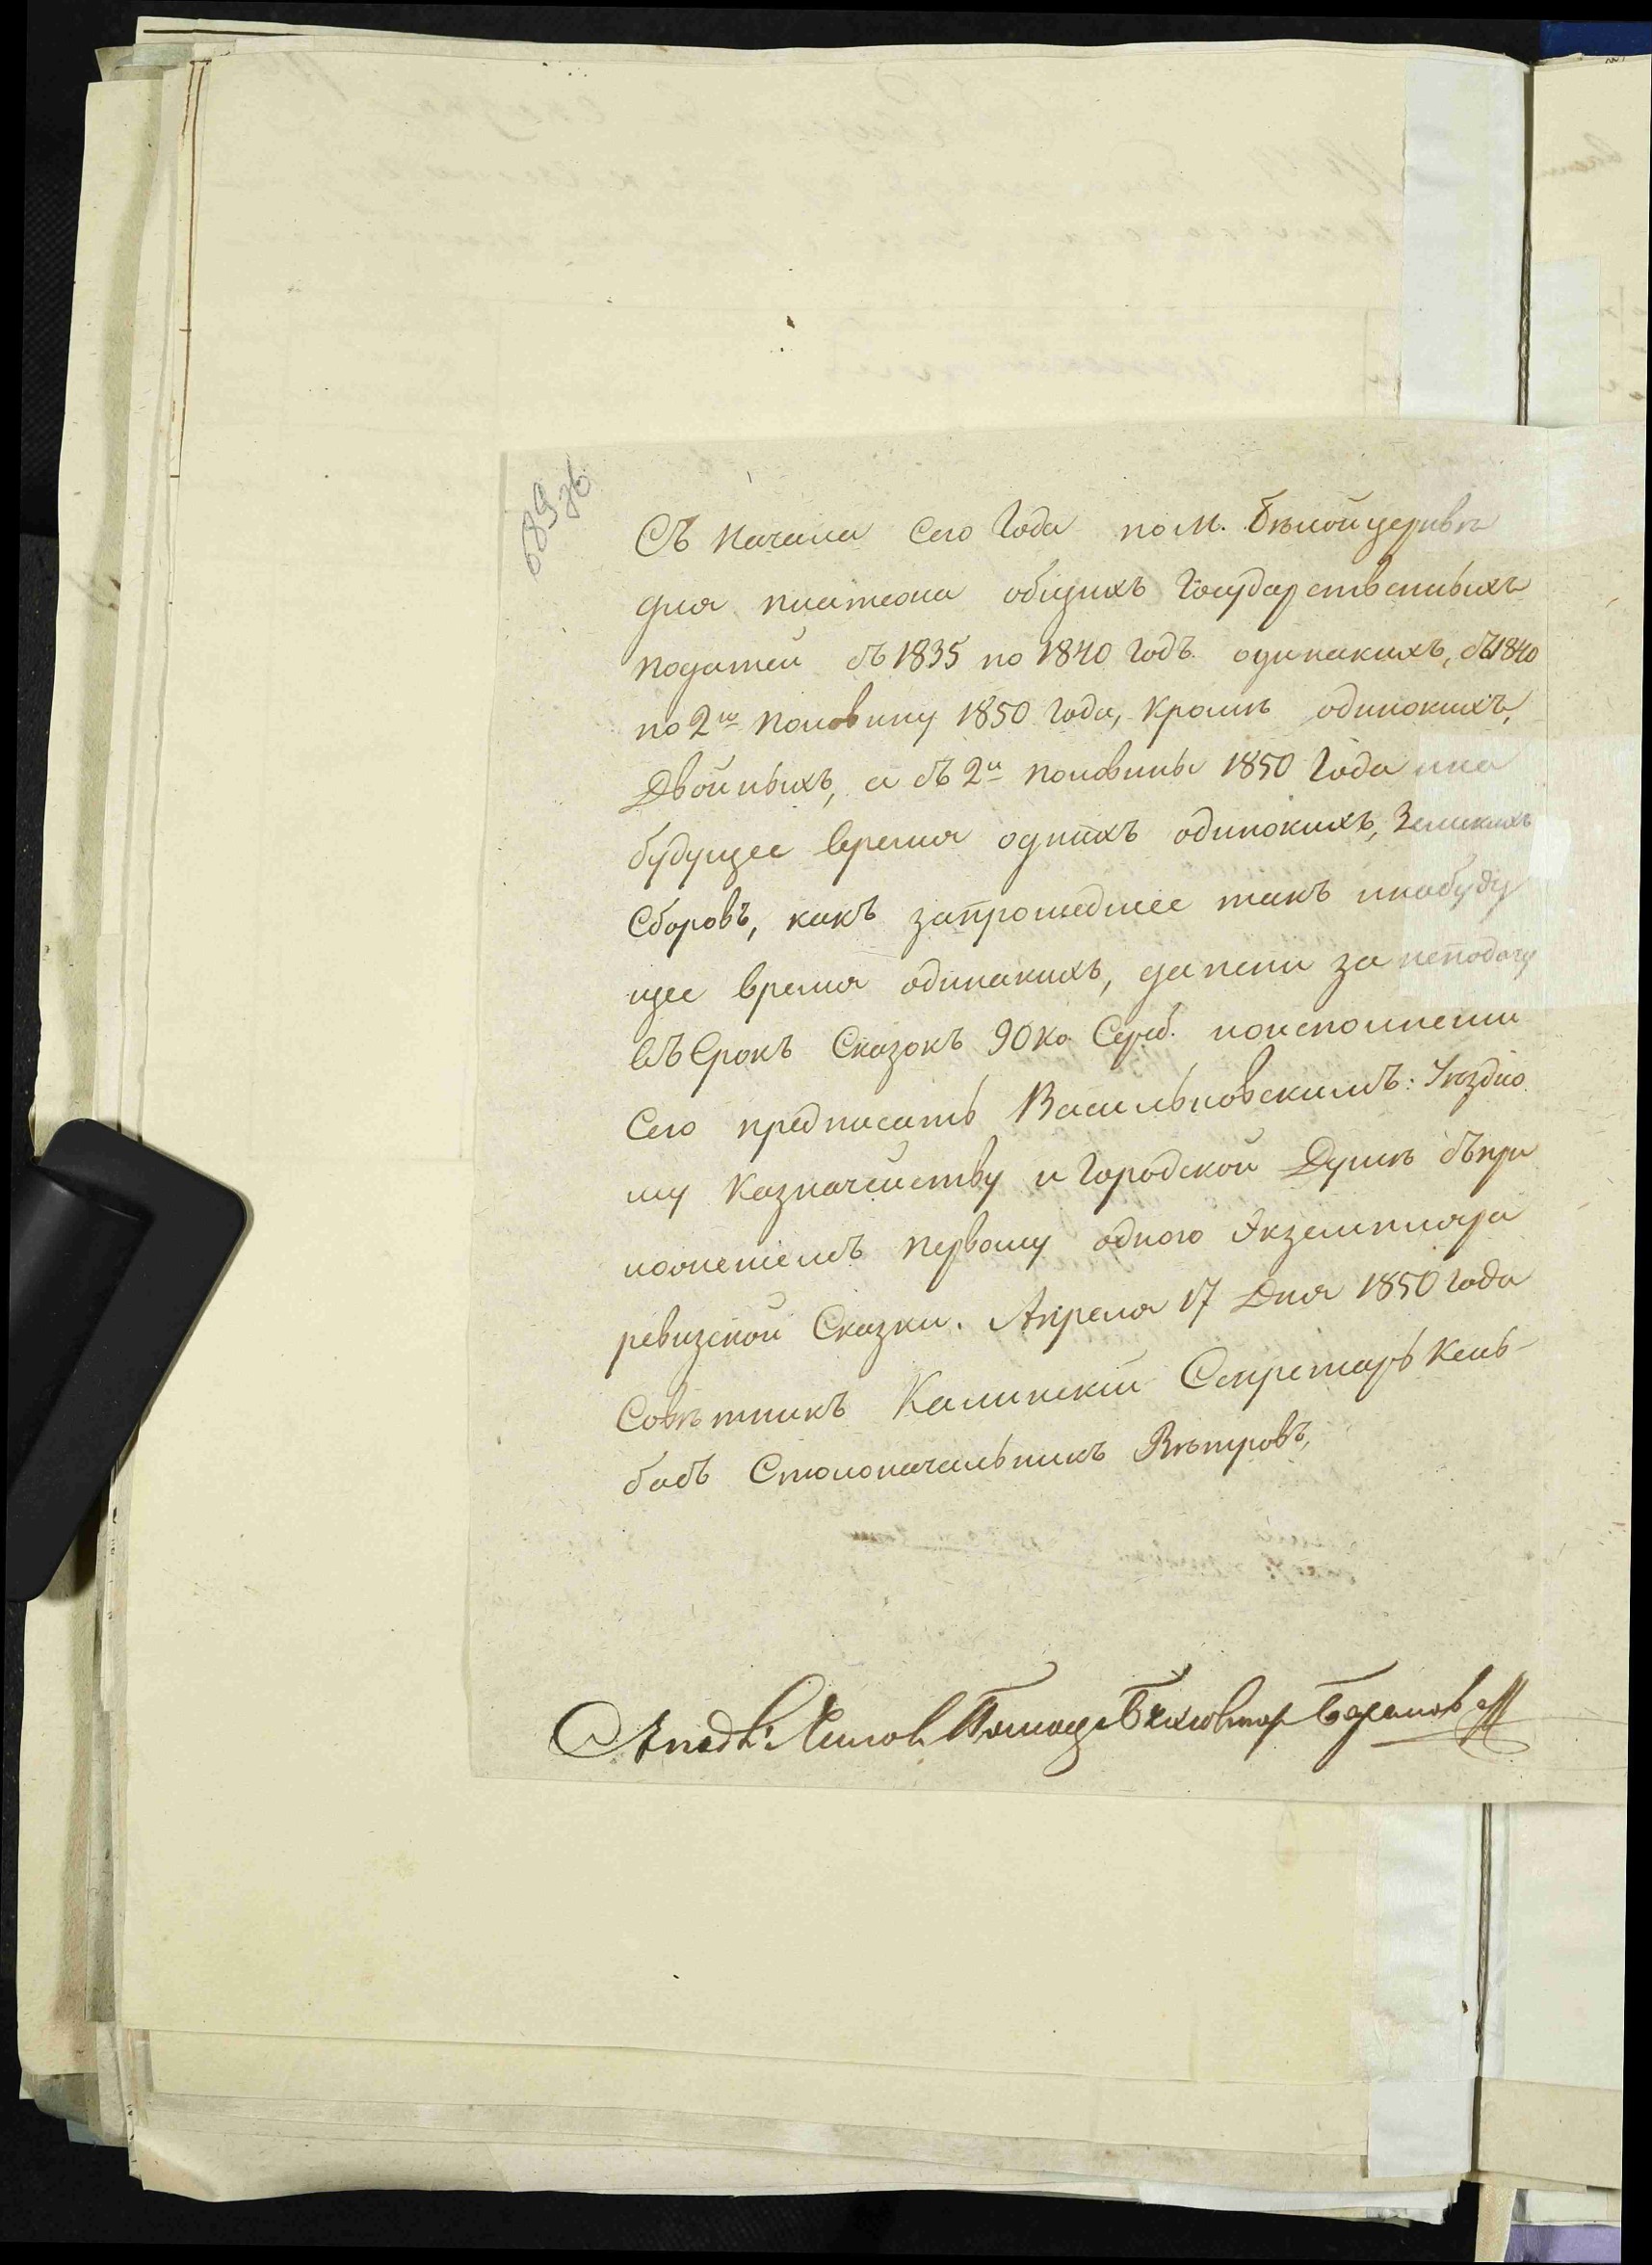 689 зв
Съ начала сего Года по м. Бѣлой церквѣ
для платежа общихъ Государственныхъ
податей съ 1835 по 1840 годъ одинакихъ, съ 1840
по 2ю половину 1850 года, кромѣ одинокихъ,
Двойныхъ, а съ 2й половины 1850 Года и на
будущее время однихъ одинокихъ, Земскихъ
Сборовъ, какъ за прошедшее такъ и на буду
щее время одинакихъ, да пени за неподачу
въ Срокъ Сказокъ 90 ко. Сереб. по исполнении
Сего предписать Васильковскимъ: Уѣздно
му Казначейству и Городской Думѣ съ при
ложениемъ первому одного Экземпляра
ревизской Сказки. Апреля 17 Дня 1850 года
Совѣтникъ Калинский Секретарь Кель-
басъ Столоначальникъ Вѣтровъ,